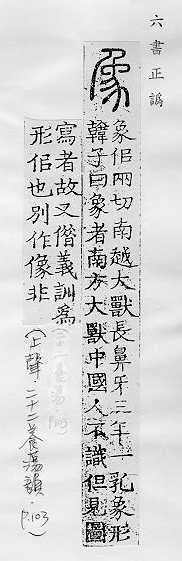 六書正譌
象
象佀兩切南越大獸長鼻牙三年一乳象形
韓子曰象者南方大獸中國人不識但見圖
寫者故又借義訓爲
形佀也別作像非
(上聲.二十二養蕩韻. P.103)